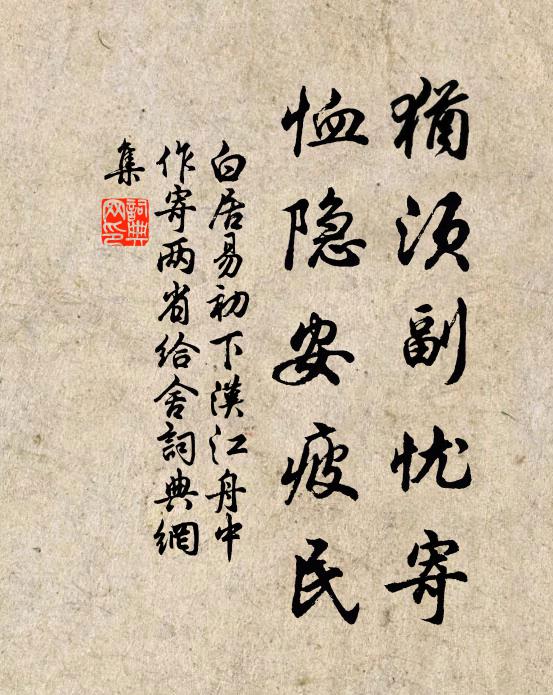 猶须副忧寄
恤隐安疲民
白居易初下漢江舟中
作寄两省给舍詞典網
集
詞典网印